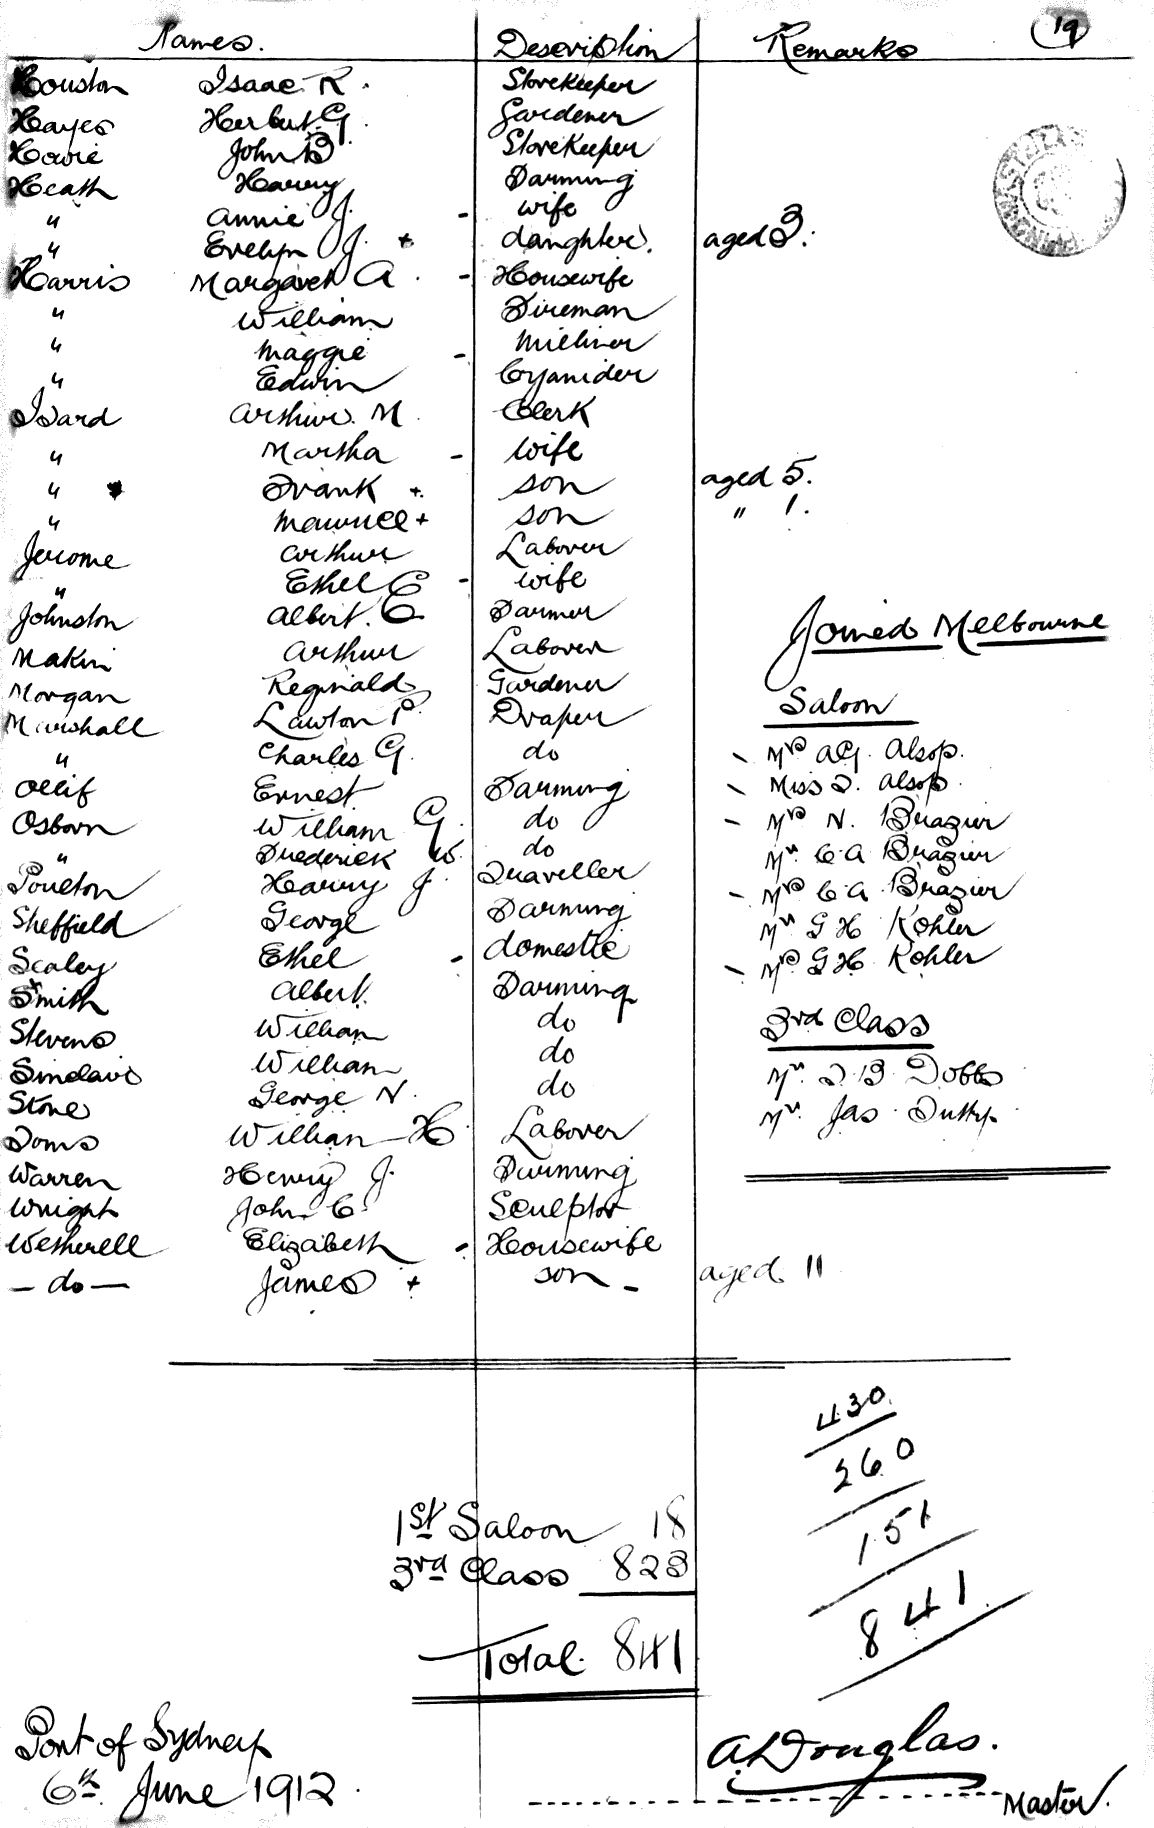 Names. Description Remarks 19
Houston Isaac R. Storekeeper
Hayes Herbert G. Gardener
Howie John B Storekeeper
Heath Harry Farming
" Annie J. - wife
" Evelyn J. + daughter. aged 3.
Harris Margaret A. - Housewife
" William Fireman
" Maggie - Milliner
" Edwin Cyanider
Isard Arthur. M. Clerk
" Martha - wife
" Frank +. son aged 5.
" Maurice + son " 1.
Jerome Arthur Laborer
" Ethel C - wife
Johnston Albert. C. Farmer
Makin Arthur Laborer
Morgan Reginald Gardener
Marshall Lawton P. Draper
" Charles G. do
Ollif Ernest Farming
Osborn William G. do
" Frederick W. do
Poulton Harry J. Traveller
Sheffield George Farming
Scaley Ethel - domestic
Smith Albert. Farming
Stevens William do
Sinclair William do
Stone George N. do
Toms William H. Laborer
Warren Henry J. Farming
Wright John C. Sculptor
Wetherell Elizabeth - Housewife
- do - James + son - aged 11
Joined Melbourne
Saloon
- Mrs AG. Alsop.
- Miss D. Alsop.
- Mrs N. Brazier
Mr. C.A Brazier
- Mrs C.A. Brazier
Mr G H Kohler
- Mrs G H. Kohler
3rd Class
Mr. F. B. Dobbs
Mr. Jas. Duffy.
430.
260
151
841.
1st Saloon 18
3rd Class 823
Total. 841
Port of Sydney
6th June 1912.
A L Douglas.
Master.